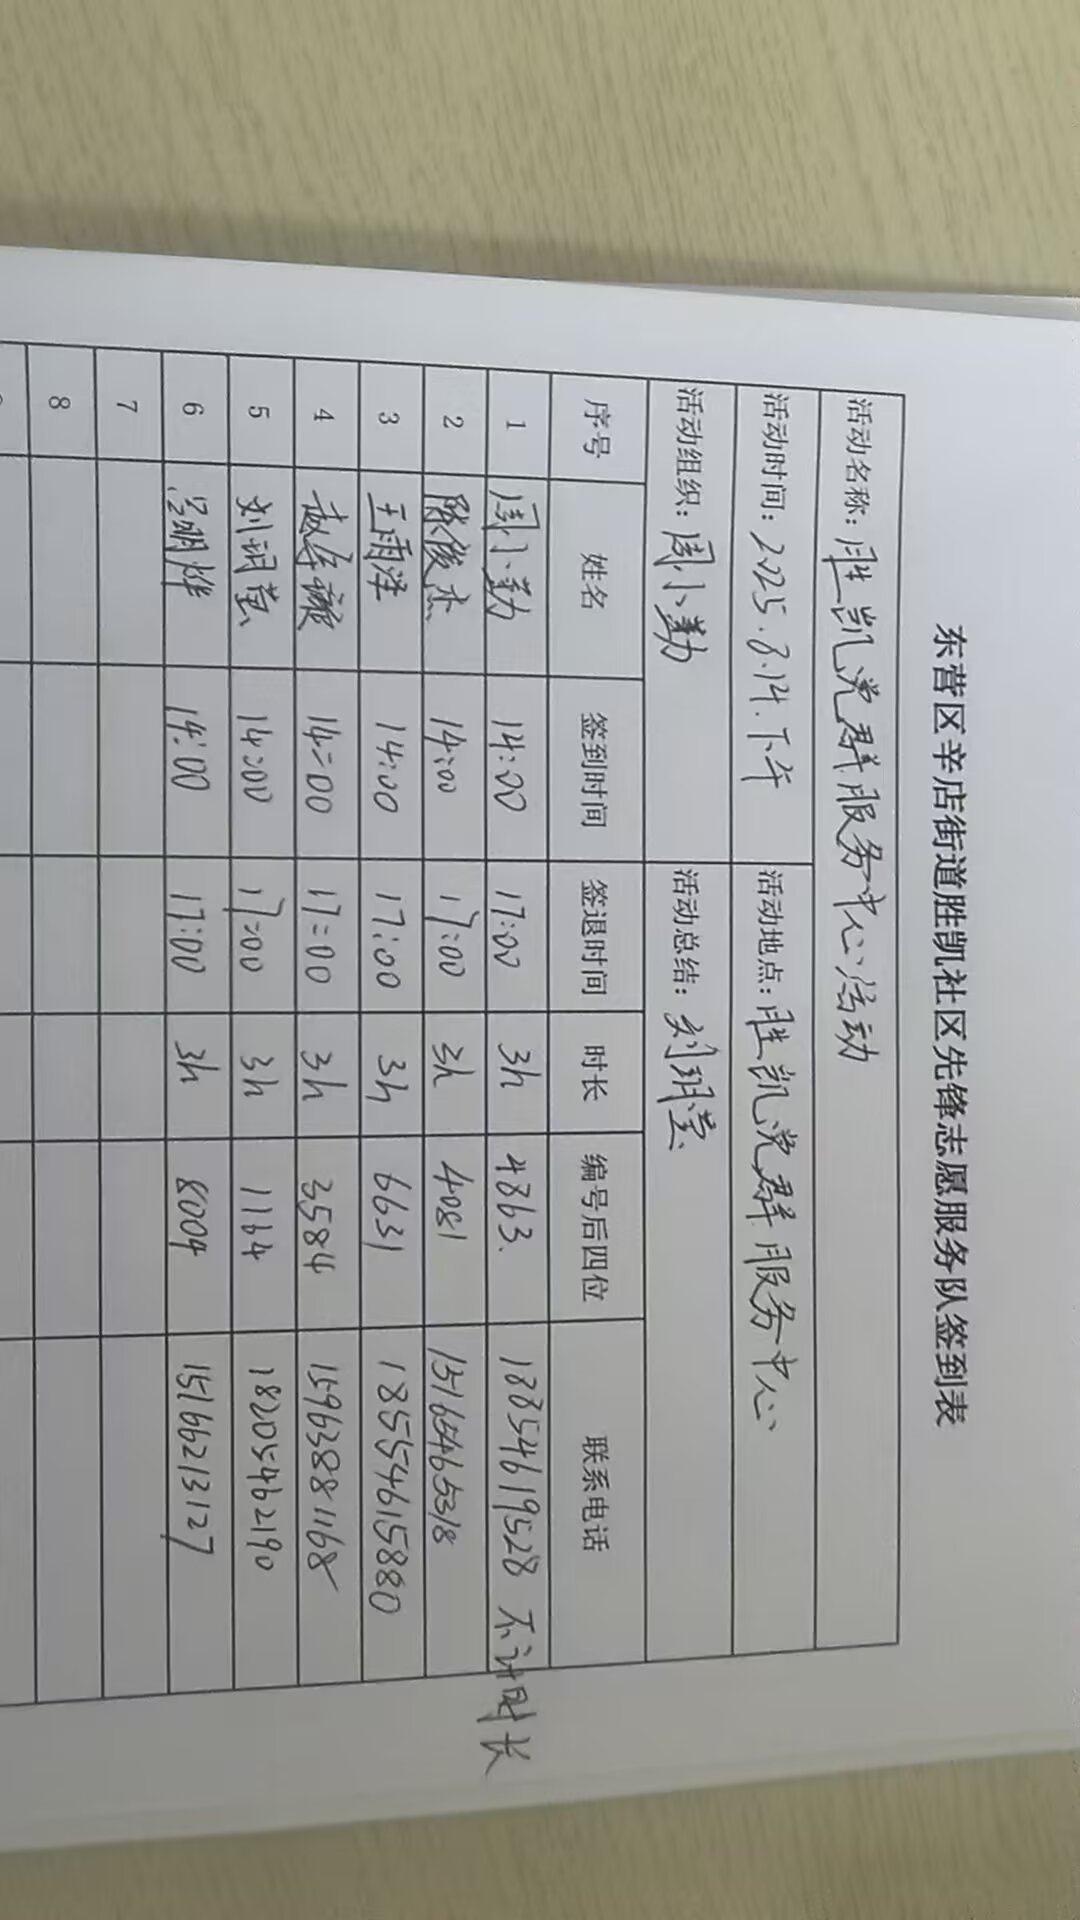 东营区辛店街道胜凯社区先锋志愿服务队签到表
活动名称：胜凯党群服务中心活动
活动时间：2025.8.14.下午 活动地点：胜凯党群服务中心
活动组织：周小勤 活动总结：刘玥莹
序号 姓名 签到时间 签退时间 时长 编号后四位 联系电话
1 周小勤 14:00 17:00 3h 4863. 18854619528 不计时长
2 陈俊杰 14:00 17:00 3h 4081 15165465318
3 王雨泽 14:00 17:00 3h 6631 18554615880
4 14:00 17:00 3h 3584 15963881168
5 刘玥莹 14:00 17:00 3h 1164 18205462190
6 14:00 17:00 3h 8004 15166213127
7
8